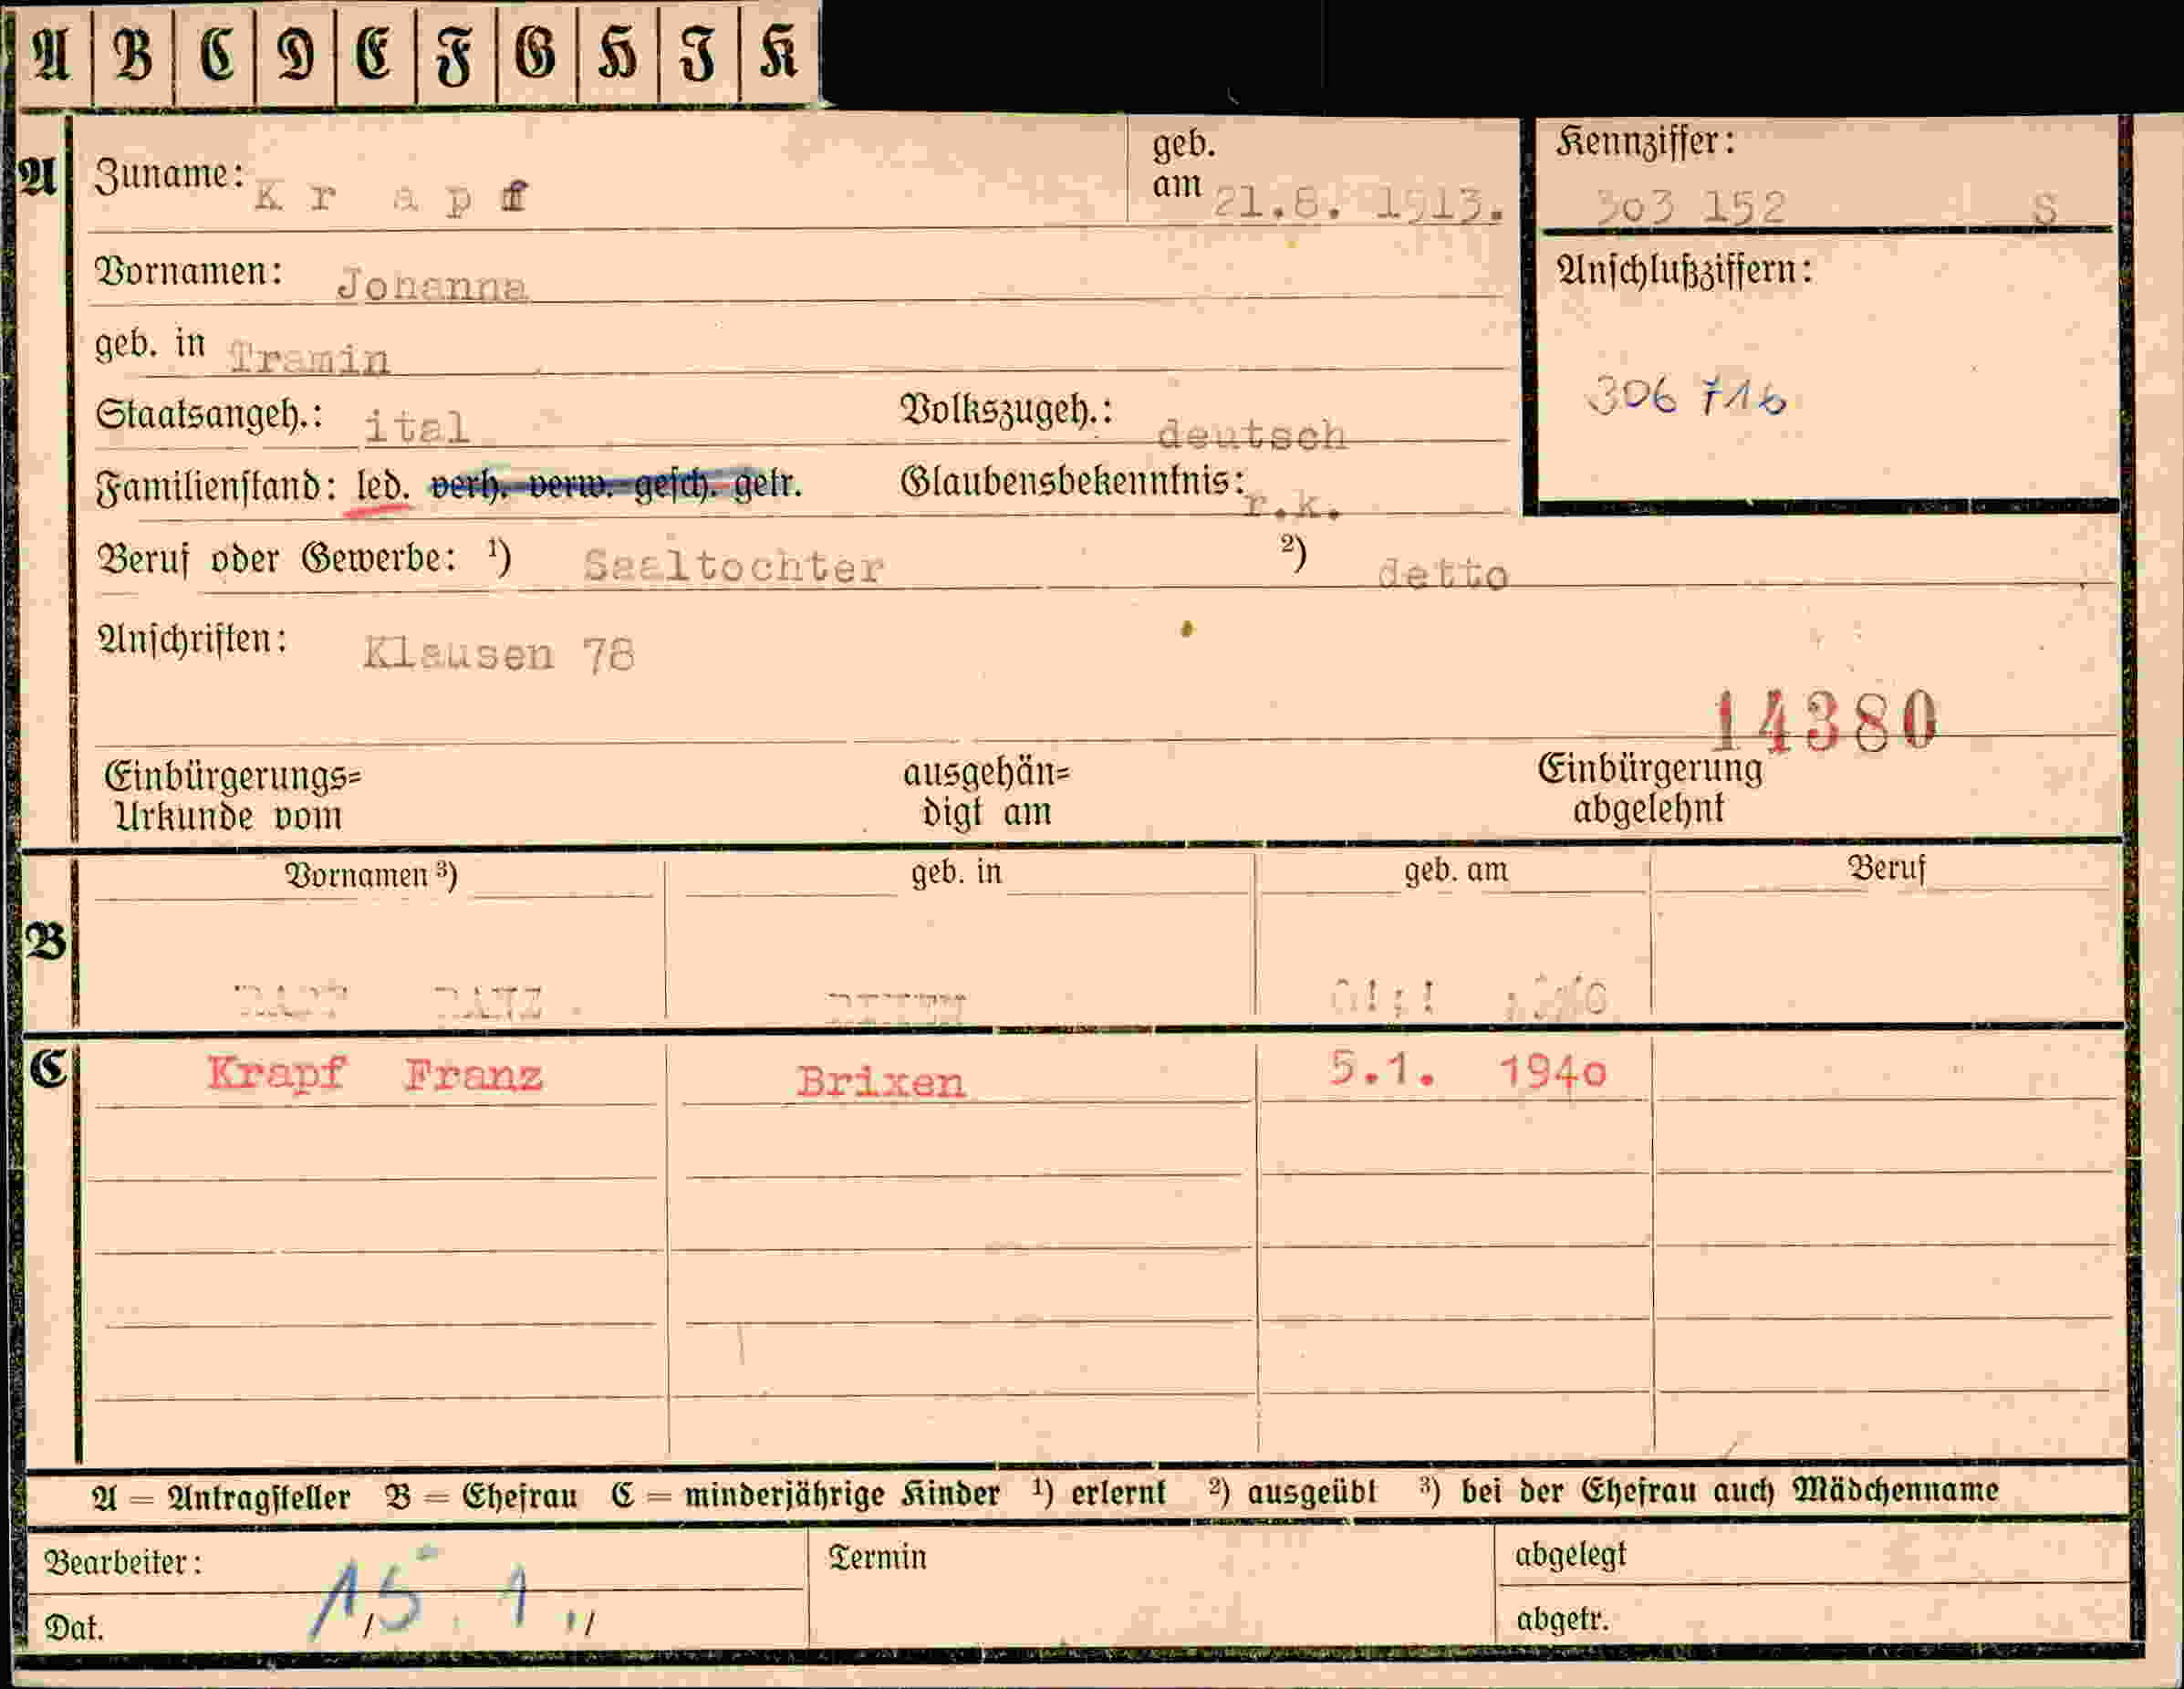 A B C D E F G H I K
A Zuname: K r a p f geb. am 21.8. 1913. Kennziffer: 303 152 S
Vornamen: Johanna Anschlußziffern:
geb. in Tramin
306 716
Staatsangeh.: ital Volkszugeh.: deutsch
Familienstand: led. verh. verw. gesch. getr. Glaubensbekenntnis: r.k.
Beruf oder Gewerbe: ¹) Saaltochter ²) detto
Anschriften: Klausen 78
14380
Einbürgerungs=
Urkunde vom
ausgehän=
digt am
Einbürgerung
abgelehnt
Vornamen ³) geb. in geb. am Beruf
B
C Krapf Franz Brixen 5.1. 1940
A = Antragsteller B = Ehefrau C = minderjährige Kinder ¹) erlernt ²) ausgeübt ³) bei der Ehefrau auch Mädchenname
Bearbeiter: Termin abgelegt
Dat. 15. 1. abgetr.